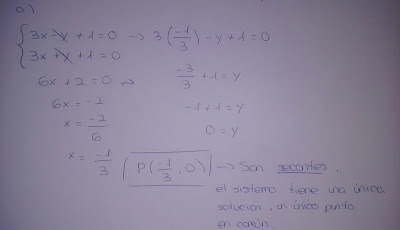 a)
3x - y + 1 = 0 → 3(-1/3) - y + 1 = 0
3x + y + 1 = 0
6x + 2 = 0 → -3/3 + 1 = y
6x = -2
-1 + 1 = y
x = -2/6
0 = y
x = -1/3
P(-1/3, 0) → Son secantes,
el sistema tiene una única
solución, un único punto
en común.